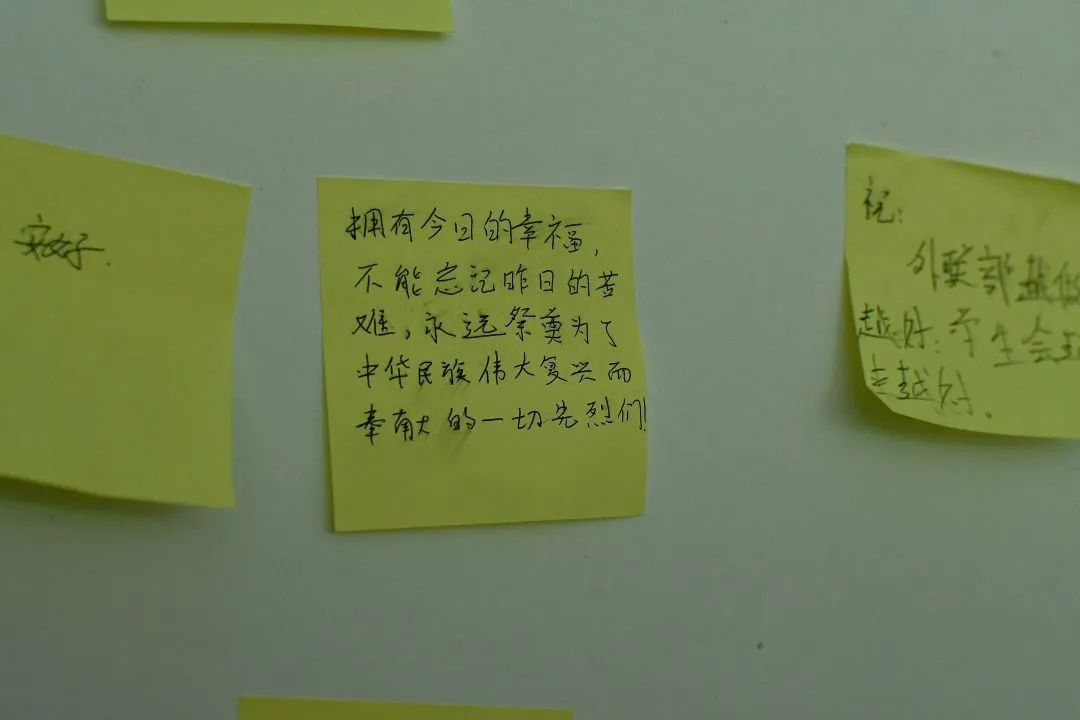 拥有今日的幸福,
不能忘记昨日的苦
难,永远祭奠为了
中华民族伟大复兴而
奉献的一切先烈们!
好.
祝:
外联部越做
越好;学生会越
走越好.